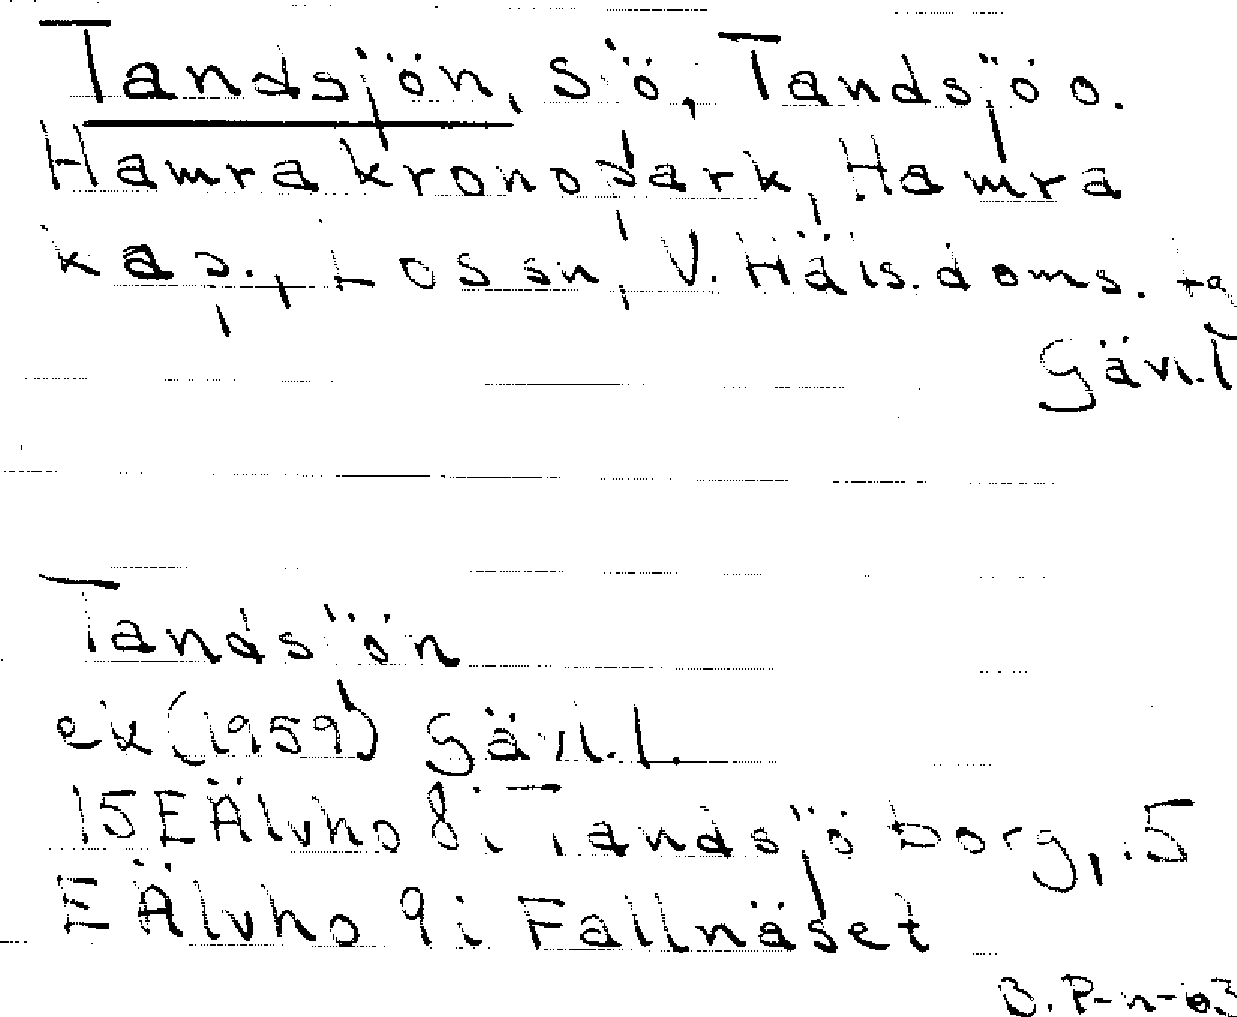 Tandsjön, sjö, Tandsjö o.
Hamra kronopark, Hamra
kap., Los sn, V. Häls. doms. tg
Gävl. l
Tandsjön
ek (1959) Gävl. l.
15 E Älvho 8 i Tandsjöborg, 15
E Älvho 9 i Fallnäset
B. P-n-63